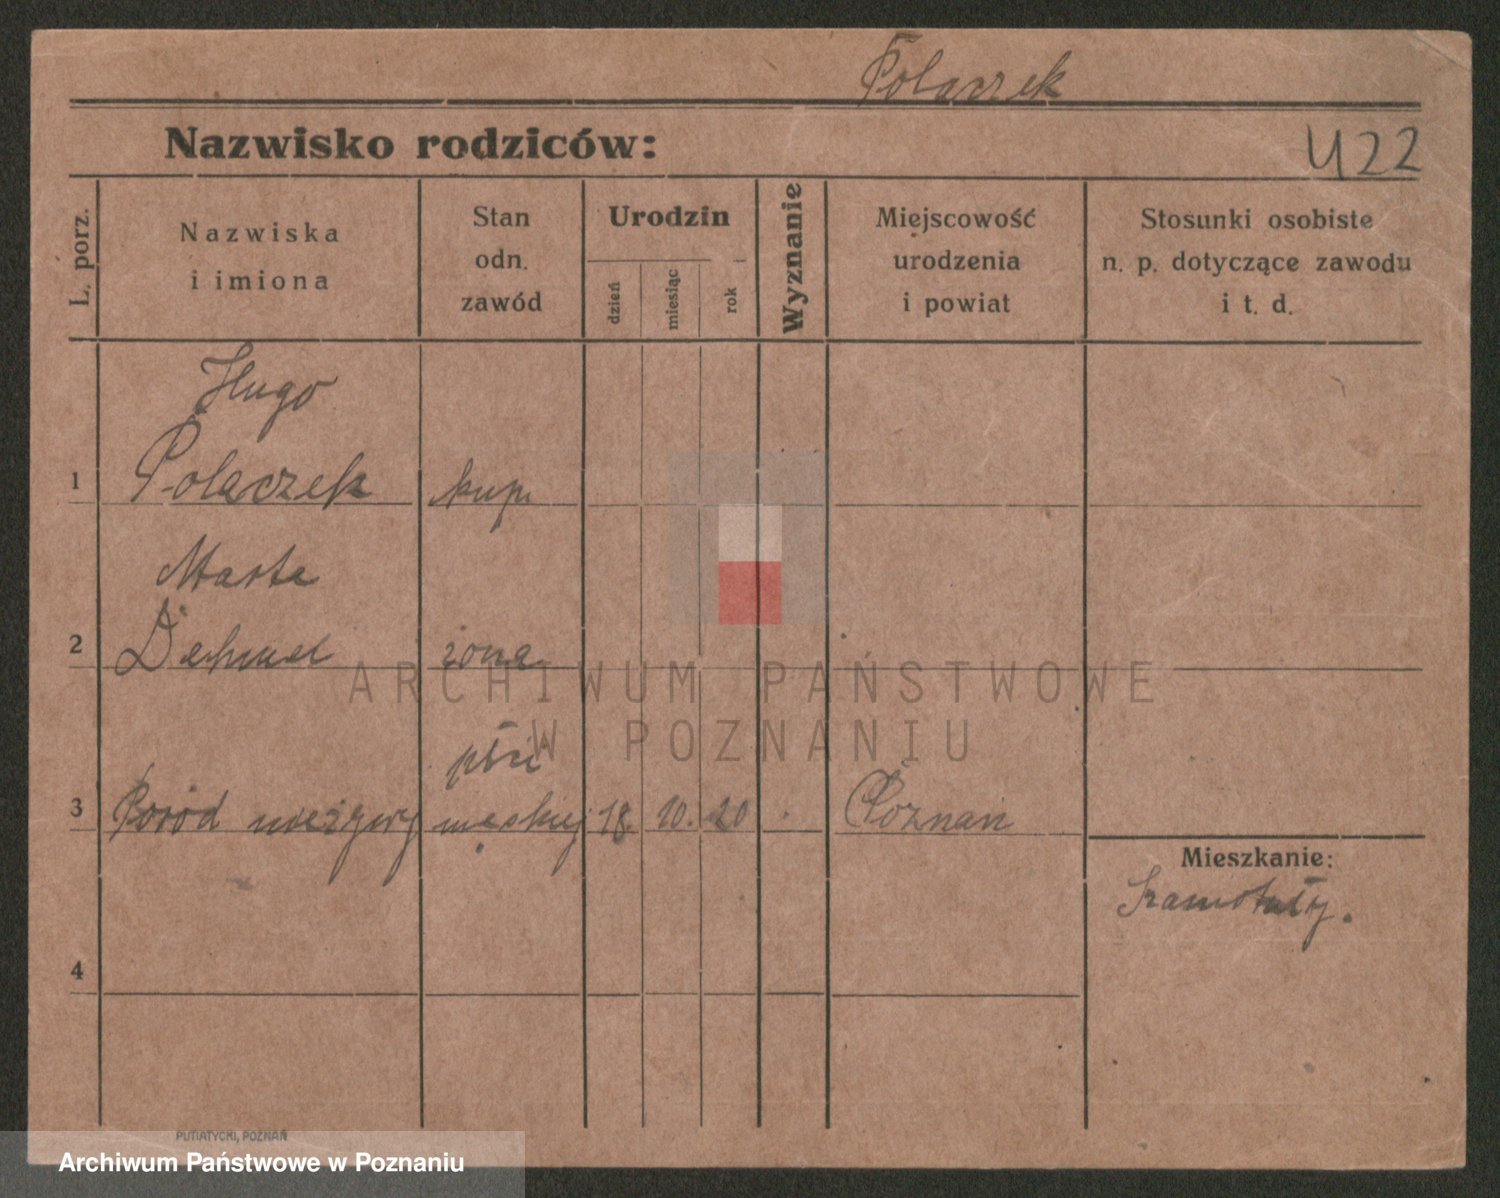 Polaczek
Nazwisko rodziców:
U22
L. porz.
Nazwiska
i imiona
Stan
odn.
zawód
Urodzin
dzień
miesiąc
rok
Wyznanie
Miejscowość
urodzenia
i powiat
Stosunki osobiste
n. p. dotyczące zawodu
i t. d.
Hugo
1 Polaczek kup.
Marta
2 Dehmel żona
ARCHIWUM PAŃSTWOWE
W POZNANIU
płci
3 Poród nieżywy męskiej 18. 10. 20 Poznań
Mieszkanie:
Szamotuły.
4
PUTIATYCKI, POZNAŃ
Archiwum Państwowe w Poznaniu